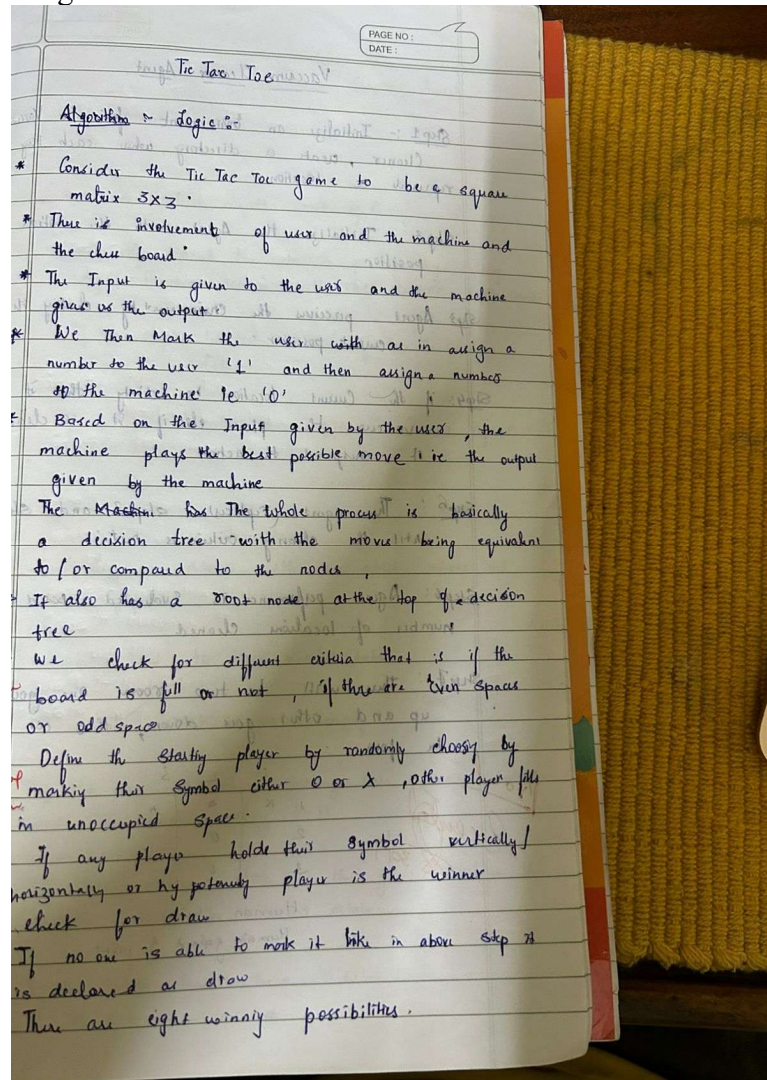 PAGE NO :
DATE :
Tic Tac Toe
Algorithm ~ Logic :-
* Consider the Tic Tac Toe game to be a square
matrix 3x3.
* There is involvement of user and the machine and
the chess board.
* The Input is given to the user and the machine
gives us the output.
* We Then Mark the user with as in assign a
number to the user '1' and then assign a number
to the machine ie '0'
* Based on the Input given by the user, the
machine plays the best possible move ie the output
given by the machine
The Machine has The whole process is basically
a decision tree with the moves being equivalent
to / or compared to the nodes,
It also has a root node at the top of a decision
tree
we check for different criteria that is if the
board is full or not, if there are Even spaces
or odd space
Define th starting player by randomly choosing by
markiy their symbol either O or X, other player fills
in unoccupied space.
If any player holds their symbol vertically /
horizontally or hypotenuly player is the winner
check for draw
If no one is able to mark it like in above step it
is declared as draw
There are eight winniy possibilities.